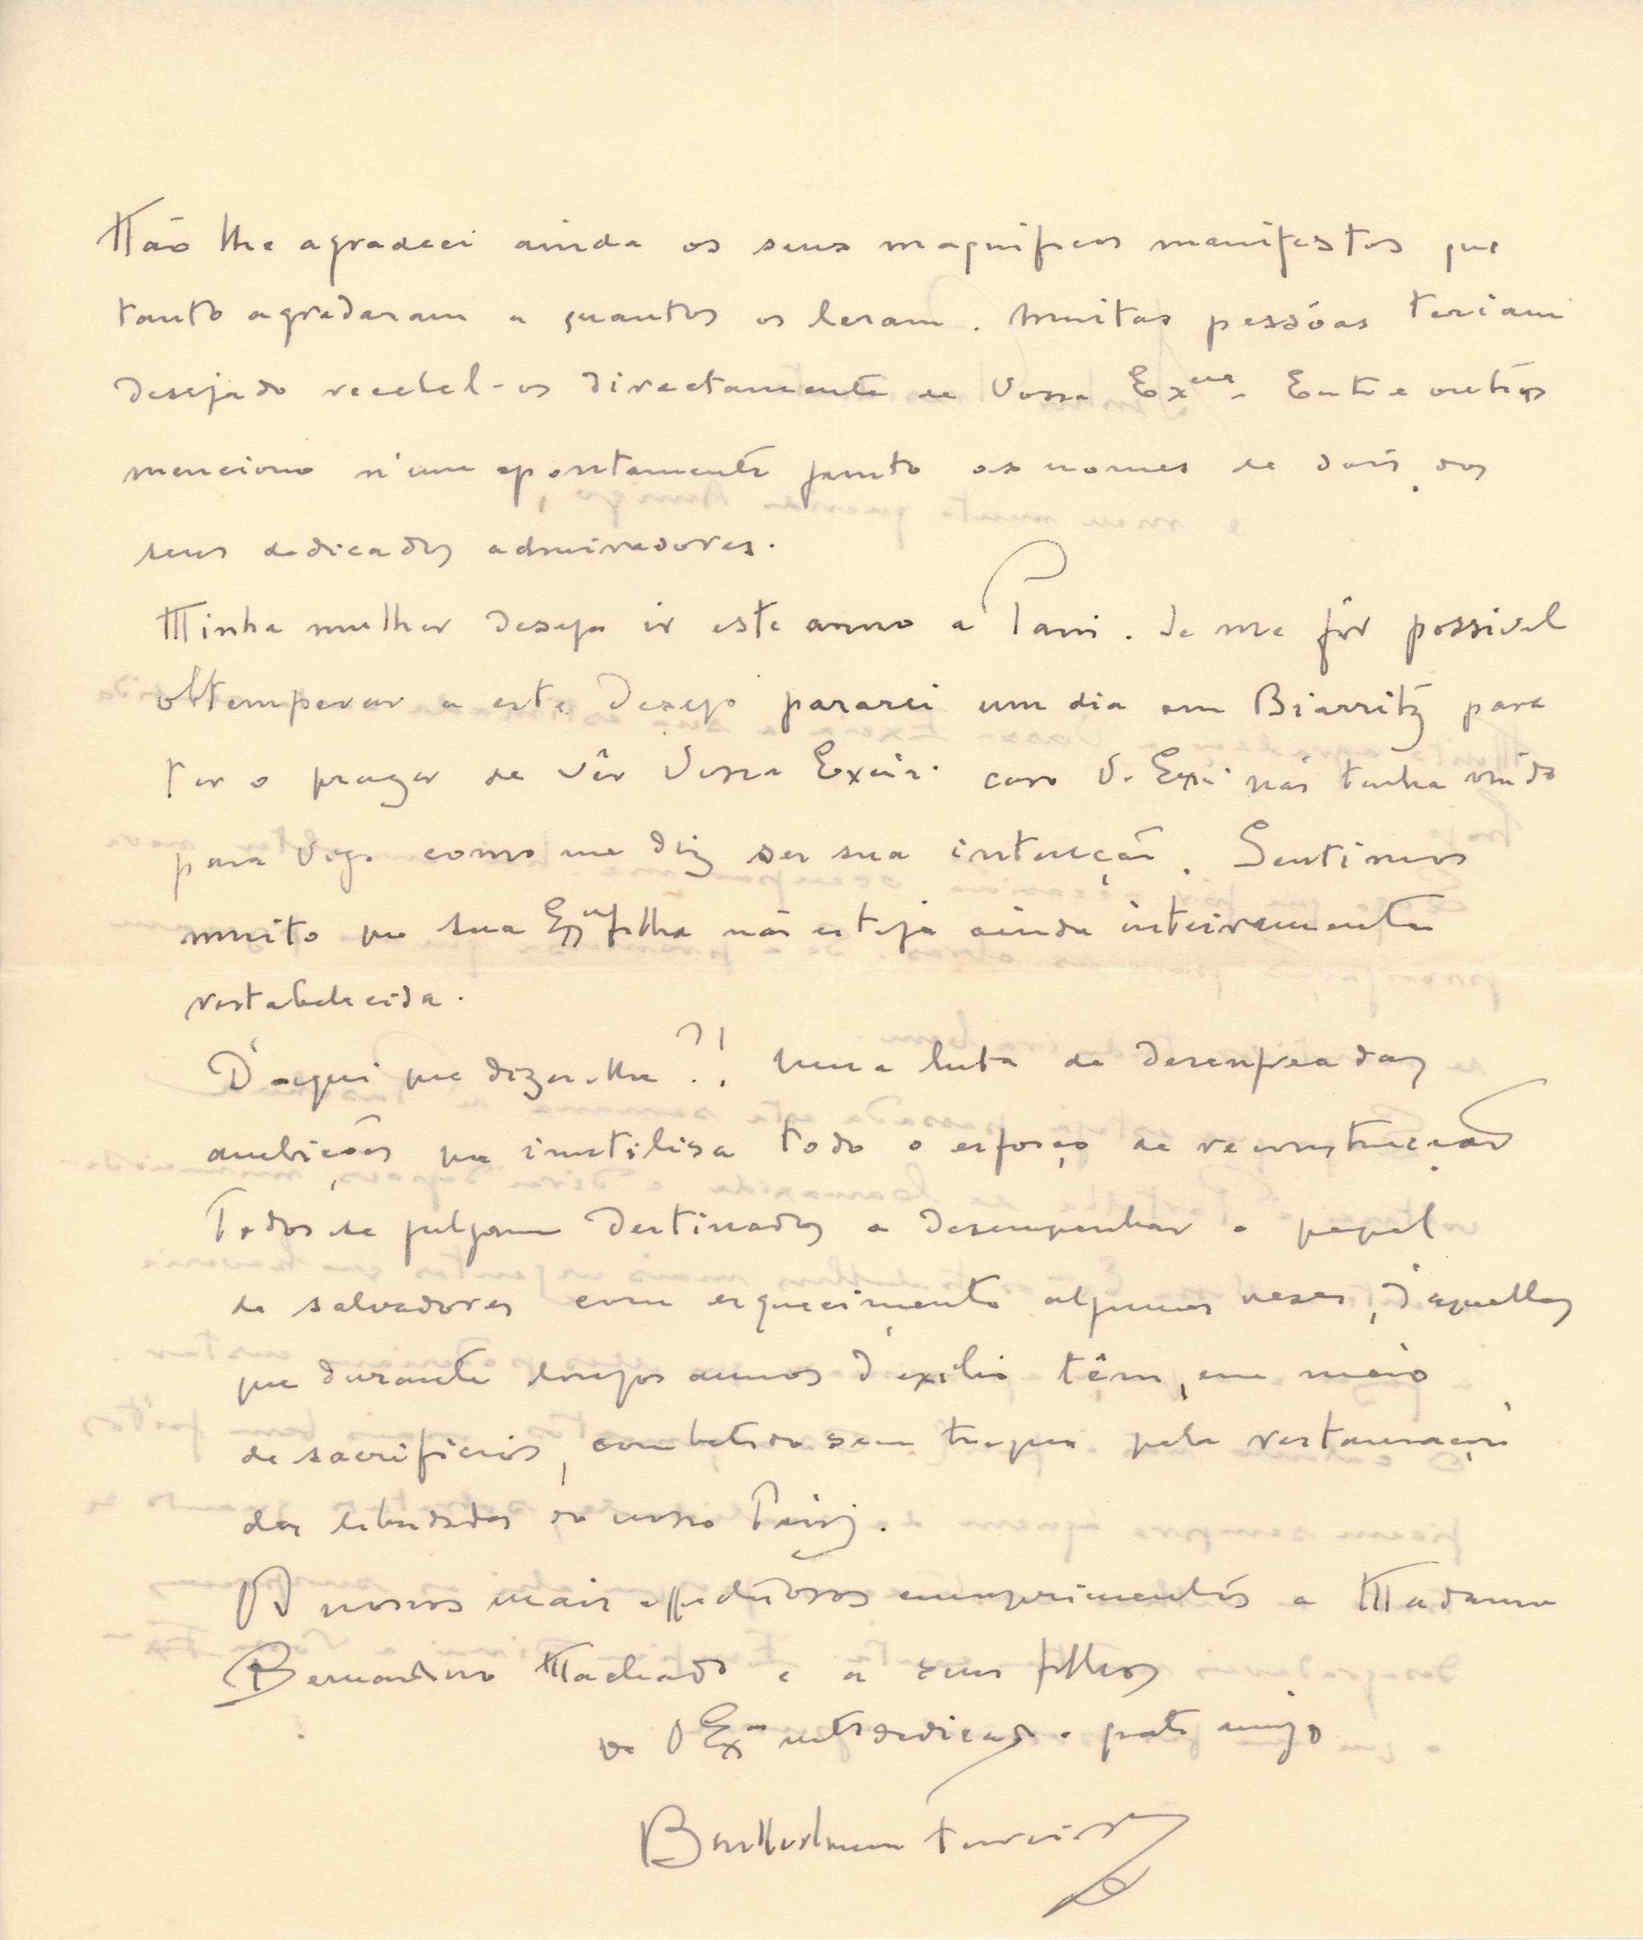 Não lhe agradeci ainda os seus magnificos manifestos que
tanto agradaram a quantos os leram. Muitas pessôas teriam
desejado recebel-os directamente de Vossa Ex.cia. Entre outros
menciono n'um apontamento junto os nomes de dois dos
seus dedicados admiradores.
Minha mulher deseja ir este anno a Paris. Se me fôr possivel
obtemperar a este desejo pararei um dia em Biarritz para
ter o prazer de vêr Vossa Excia. caso V. Excia não tenha vindo
para Vigo como me diz ser sua intenção. Sentimos
muito que sua Exma filha não esteja ainda inteiramente
restabelecida.
D'aqui que dizer-lhe?! Uma luta de desenfreadas
ambições que inutilisa todo o esforço de reconstrucção.
Todos se julgam destinados a desempenhar o papel
de salvadores com esquecimento algumas vezes, d'aquelles
que durante longos annos d'exilio têm, em meio
de sacrificios, combatido sem tregua pela restauração
das liberdades do nosso Paiz.
Os nossos mais affectuosos cumprimentos a Madame
Bernardino Machado e a seus filhos
De V Exa mto dedicado e grato amigo
Bartholomeu Ferreira